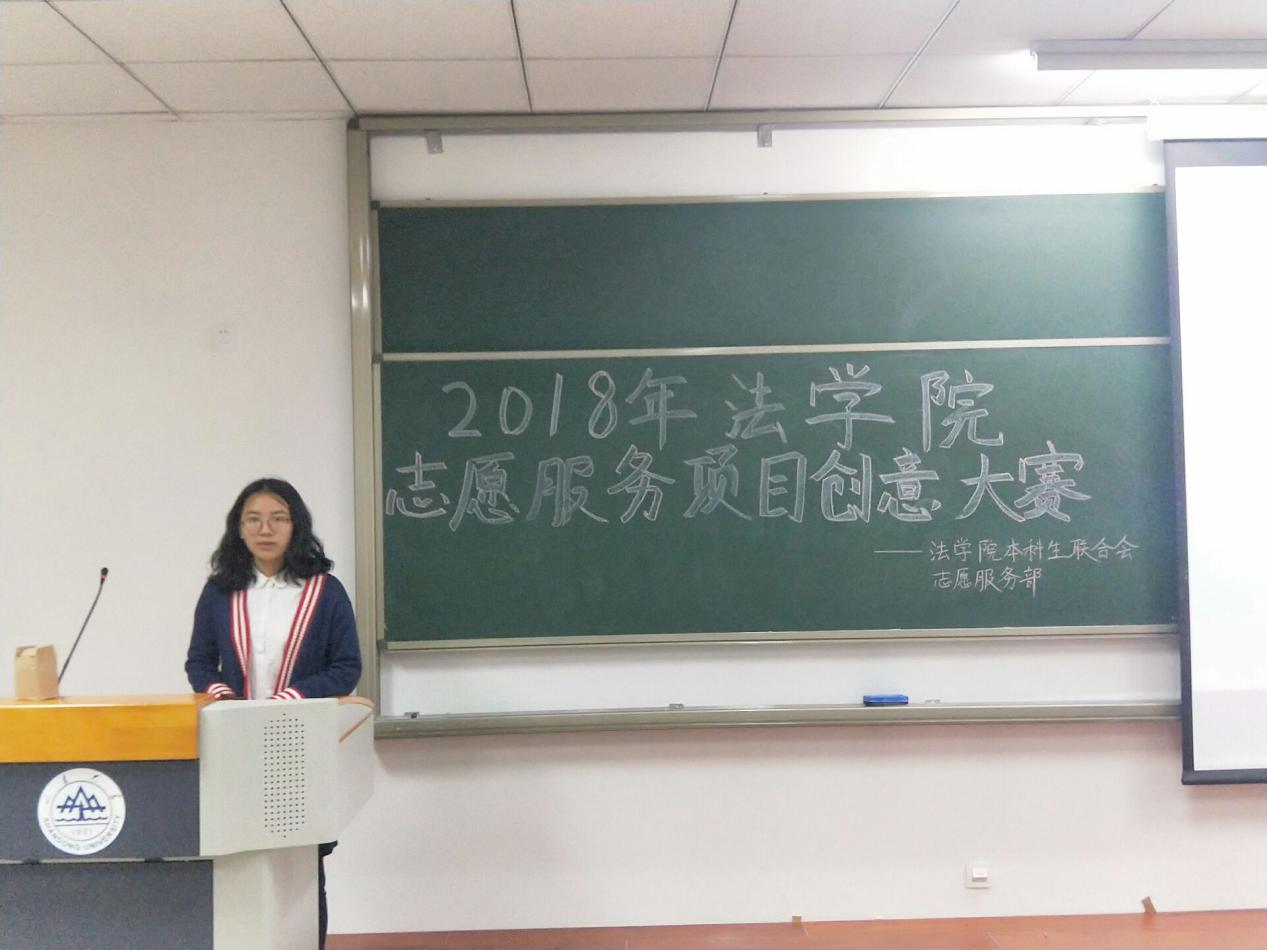 2018年法学院
志愿服务项目创意大赛
——法学院本科生联合会
志愿服务部
1901
SHANDONG UNIVERSITY